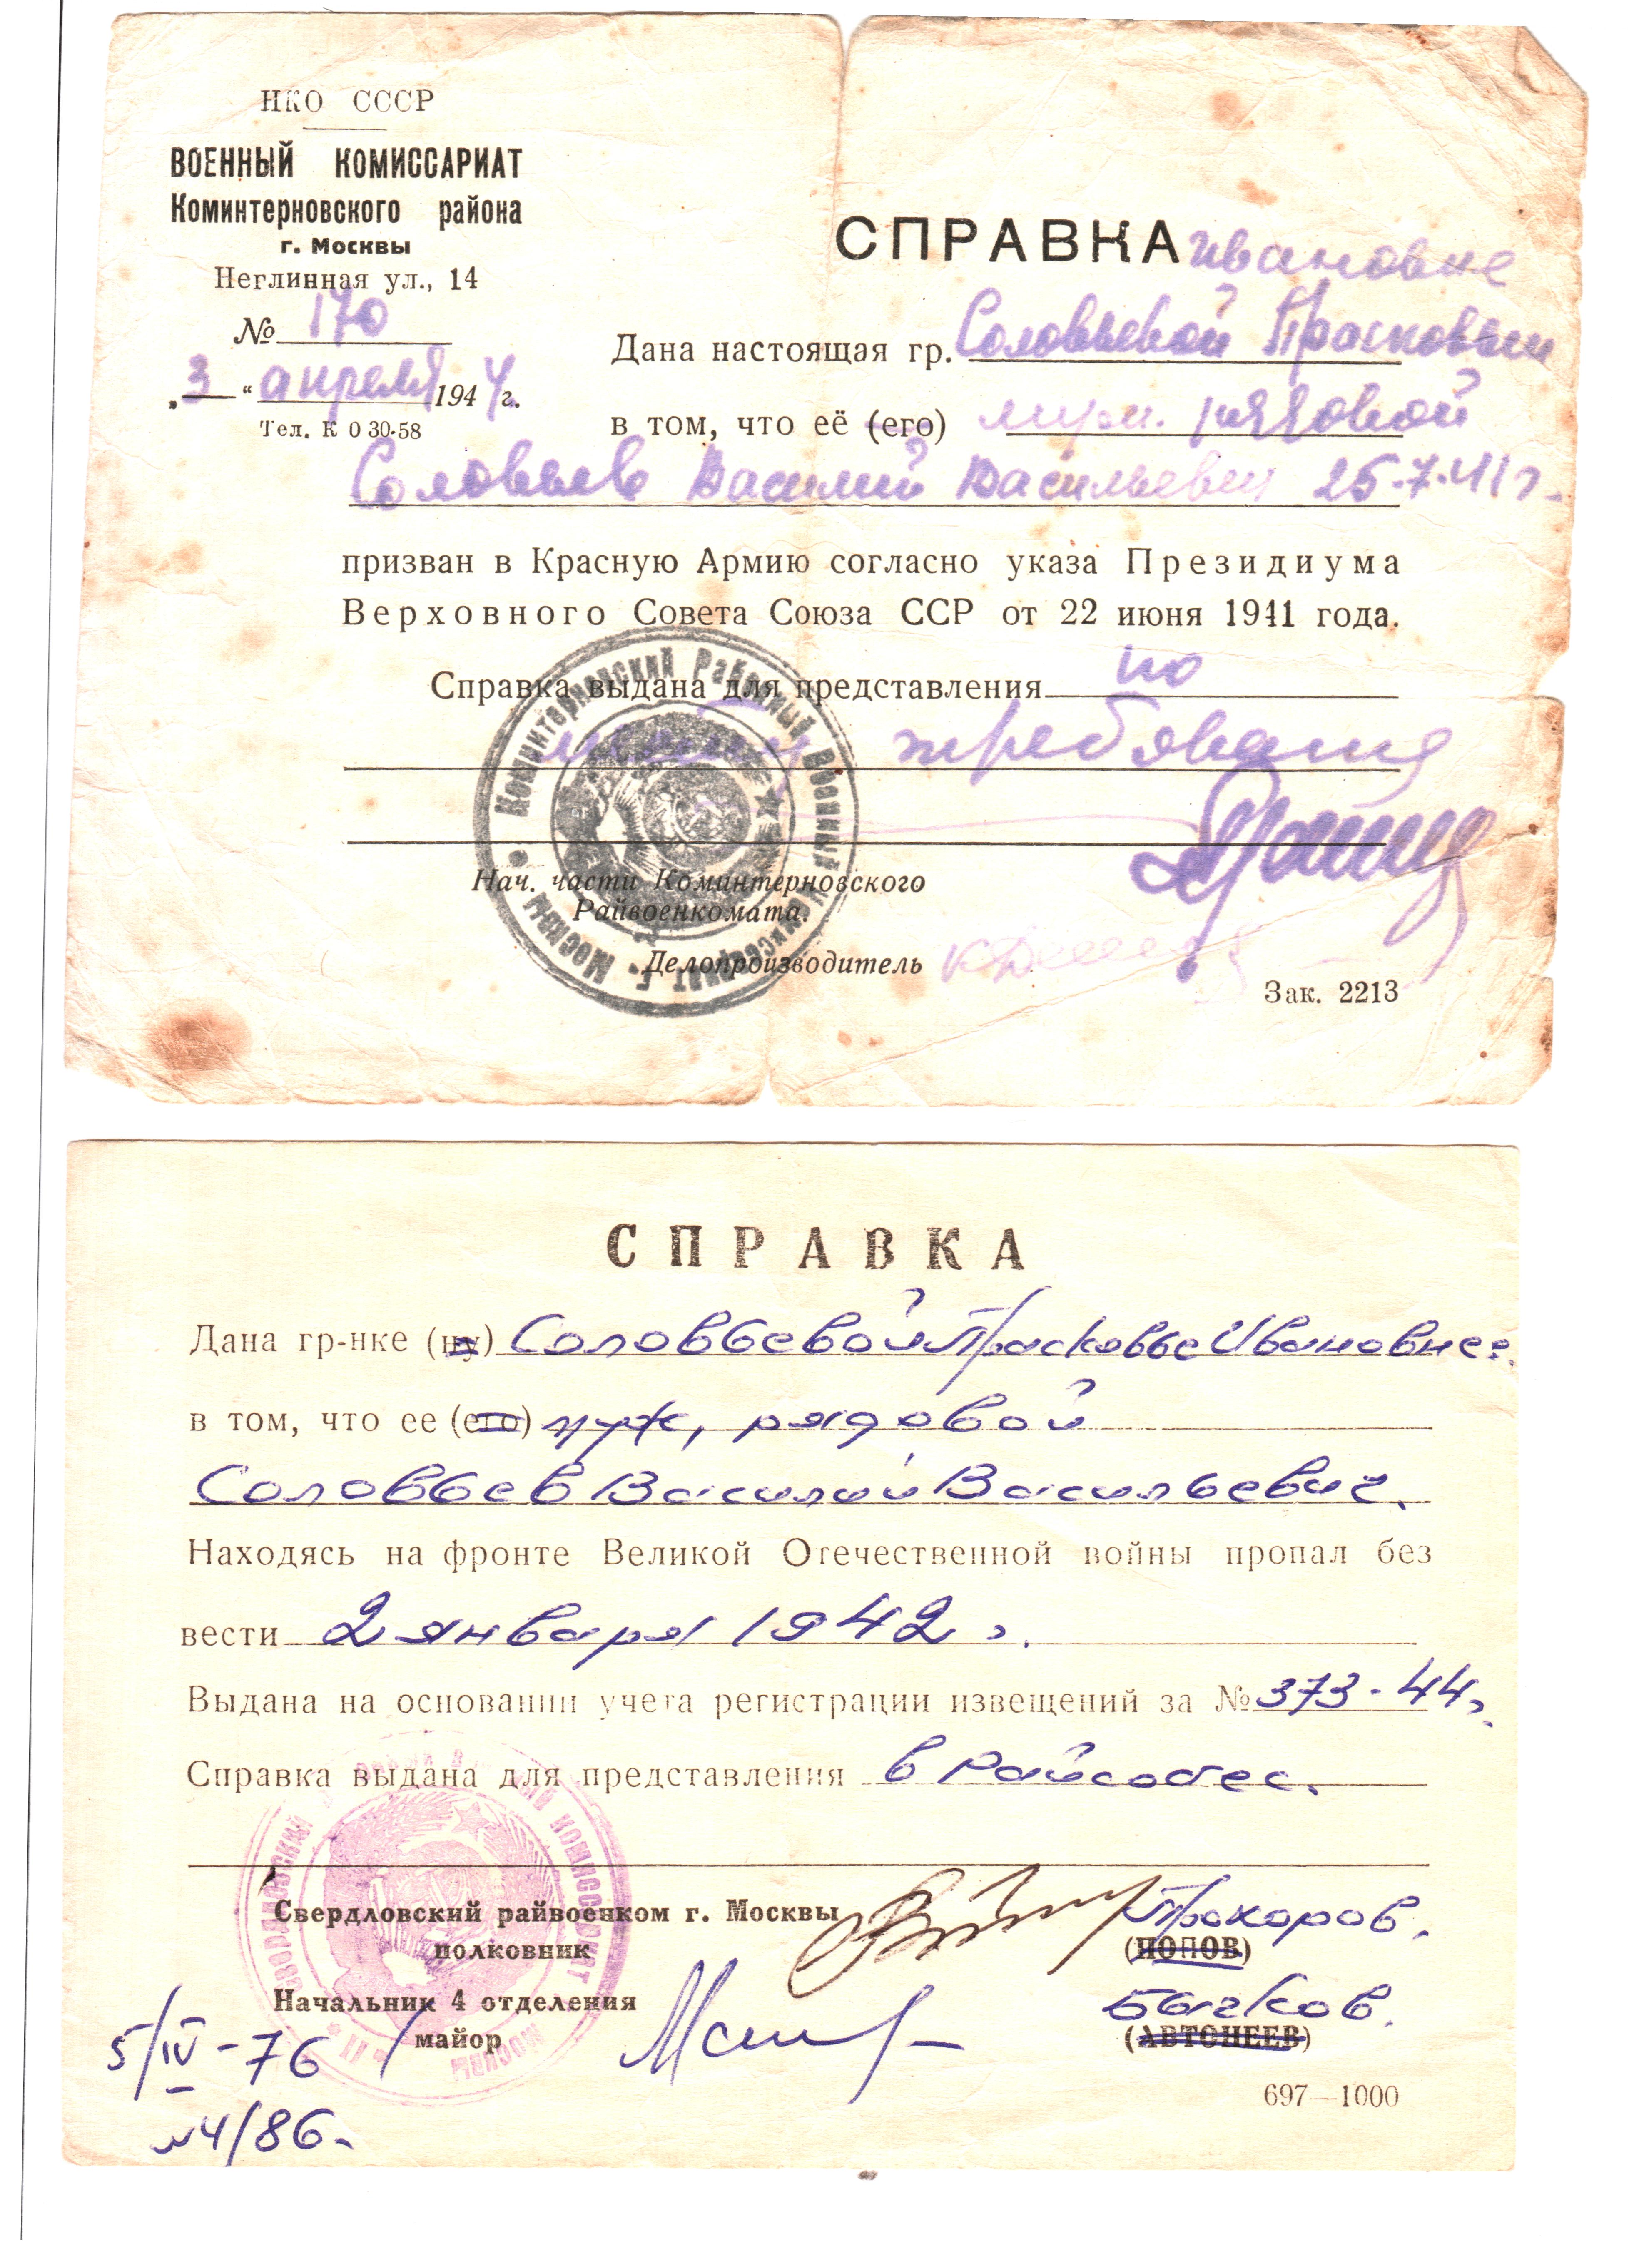 НКО СССР
ВОЕННЫЙ КОМИССАРИАТ
Коминтерновского района
г. Москвы
Неглинная ул., 14
№ 170
„3“ апреля 1944 г.
Тел. К 0 30-58
СПРАВКА
Ивановне
Дана настоящая гр. Соловьевой Прасковьи
в том, что её (его) муж. рядовой
Соловьев Василий Васильевич 25.7.41 г.
призван в Красную Армию согласно указа Президиума
Верховного Совета Союза ССР от 22 июня 1941 года.
Справка выдана для представления по
месту требования
Нач. части Коминтерновского
Райвоенкомата.
Делопроизводитель
Зак. 2213
Коминтерновский Районный Военный Комиссариат г. Москвы
СПРАВКА
Дана гр-нке (ну) Соловьевой Прасковье Ивановне
в том, что ее (его) муж, рядовой
Соловьев Василий Васильевич.
Находясь на фронте Великой Отечественной войны пропал без
вести 2 января 1942 г.
Выдана на основании учета регистрации извещений за № 373-44 г.
Справка выдана для представления в Райсобес.
Свердловский райвоенком г. Москвы Прохоров.
полковник (ПОПОВ)
Начальник 4 отделения
майор (АВТОНЕЕВ)
5/IV-76
№4/86.
697—1000